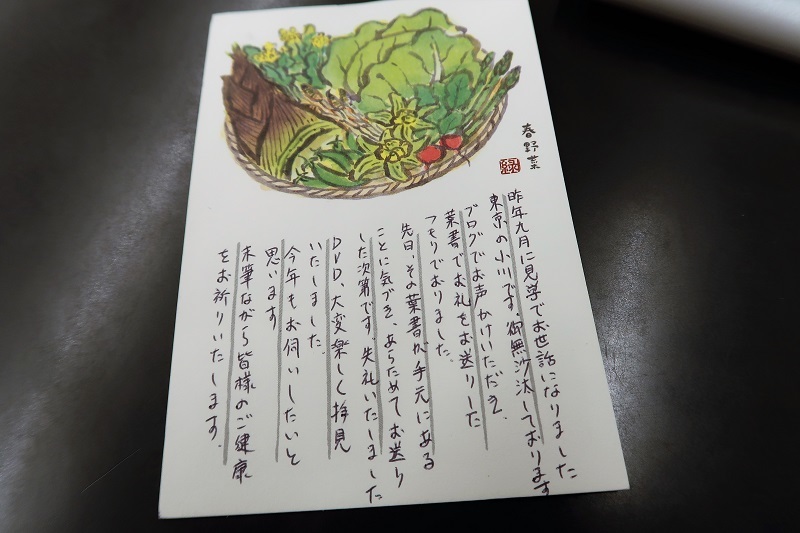 春野菜
緑
昨年九月に見学でお世話になりました
東京の小川です。御無沙汰しております
ブログでお声かけいただき、
葉書でお礼をお送りした
つもりでおりました。
先日、その葉書が手元にある
ことに気づき、あらためてお送り
した次第です。失礼いたしました
DVD、大変楽しく拝見
いたしました。
今年もお伺いしたいと
思います
末筆ながら皆様のご健康
をお祈りいたします。